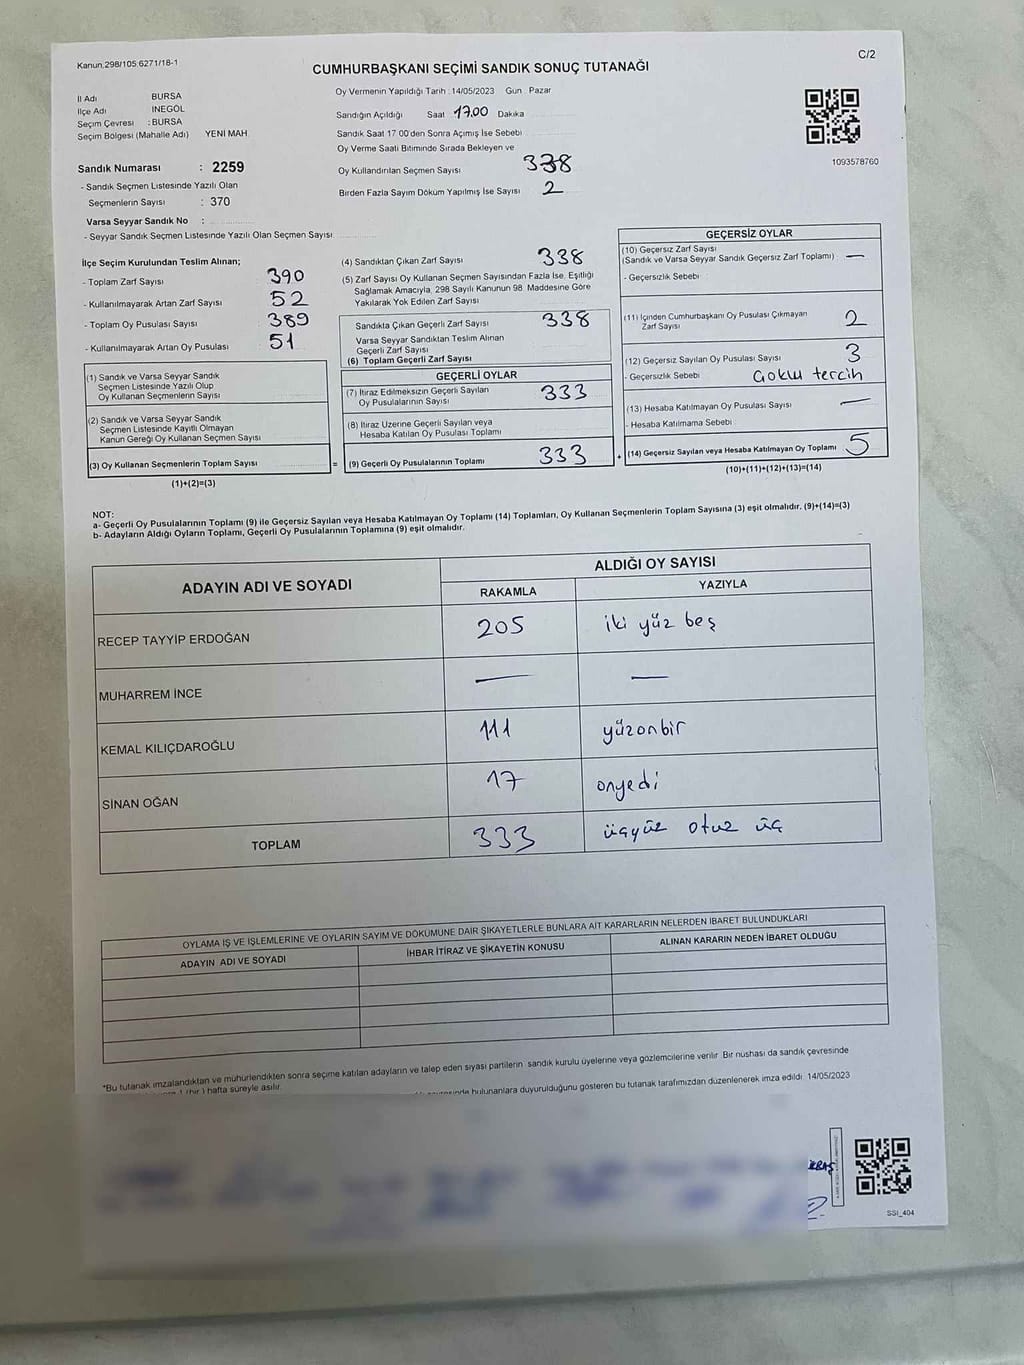 Kanun.298/105.6271/18-1
C/2
CUMHURBAŞKANI SEÇİMİ SANDIK SONUÇ TUTANAĞI
İl Adı BURSA
İlçe Adı İNEGÖL
Seçim Çevresi : BURSA
Seçim Bölgesi (Mahalle Adı) YENİ MAH.
Sandık Numarası : 2259
- Sandık Seçmen Listesinde Yazılı Olan
Seçmenlerin Sayısı : 370
Varsa Seyyar Sandık No :
- Seyyar Sandık Seçmen Listesinde Yazılı Olan Seçmen Sayısı
Oy Vermenin Yapıldığı Tarih : 14/05/2023 Gün : Pazar
Sandığın Açıldığı Saat 17.00 Dakika
Sandık Saat 17.00'den Sonra Açımış İse Sebebi
Oy Verme Saati Bitiminde Sırada Bekleyen ve
Oy Kullandırılan Seçmen Sayısı 338
Birden Fazla Sayım Döküm Yapılmış İse Sayısı 2
1093578760
İlçe Seçim Kurulundan Teslim Alınan;
- Toplam Zarf Sayısı 390
- Kullanılmayarak Artan Zarf Sayısı 52
- Toplam Oy Pusulası Sayısı 389
- Kullanılmayarak Artan Oy Pusulası 51
(1) Sandık ve Varsa Seyyar Sandık
Seçmen Listesinde Yazılı Olup
Oy Kullanan Seçmenlerin Sayısı
(2) Sandık ve Varsa Seyyar Sandık
Seçmen Listesinde Kayıtlı Olmayan
Kanun Gereği Oy Kullanan Seçmen Sayısı
(3) Oy Kullanan Seçmenlerin Toplam Sayısı =
(1)+(2)=(3)
(4) Sandıktan Çıkan Zarf Sayısı 338
(5) Zarf Sayısı Oy Kullanan Seçmen Sayısından Fazla İse, Eşitliği
Sağlamak Amacıyla, 298 Sayılı Kanunun 98. Maddesine Göre
Yakılarak Yok Edilen Zarf Sayısı
Sandıkta Çıkan Geçerli Zarf Sayısı 338
Varsa Seyyar Sandıktan Teslim Alınan
Geçerli Zarf Sayısı
(6) Toplam Geçerli Zarf Sayısı
GEÇERLİ OYLAR
(7) İtiraz Edilmeksizin Geçerli Sayılan
Oy Pusulalarının Sayısı 333
(8) İtiraz Üzerine Geçerli Sayılan veya
Hesaba Katılan Oy Pusulası Toplamı
(9) Geçerli Oy Pusulalarının Toplamı 333 +
GEÇERSİZ OYLAR
(10) Geçersiz Zarf Sayısı
(Sandık ve Varsa Seyyar Sandık Geçersiz Zarf Toplamı) —
- Geçersizlik Sebebi
(11) İçinden Cumhurbaşkanı Oy Pusulası Çıkmayan
Zarf Sayısı 2
(12) Geçersiz Sayılan Oy Pusulası Sayısı 3
- Geçersizlik Sebebi Çoklu tercih
(13) Hesaba Katılmayan Oy Pusulası Sayısı —
- Hesaba Katılmama Sebebi
(14) Geçersiz Sayılan veya Hesaba Katılmayan Oy Toplamı 5
(10)+(11)+(12)+(13)=(14)
NOT:
a- Geçerli Oy Pusulalarının Toplamı (9) ile Geçersiz Sayılan veya Hesaba Katılmayan Oy Toplamı (14) Toplamları, Oy Kullanan Seçmenlerin Toplam Sayısına (3) eşit olmalıdır. (9)+(14)=(3)
b- Adayların Aldığı Oyların Toplamı, Geçerli Oy Pusulalarının Toplamına (9) eşit olmalıdır.
ADAYIN ADI VE SOYADI ALDIĞI OY SAYISI
RAKAMLA YAZIYLA
RECEP TAYYİP ERDOĞAN 205 iki yüz beş
MUHARREM İNCE — —
KEMAL KILIÇDAROĞLU 111 yüzonbir
SİNAN OĞAN 17 onyedi
TOPLAM 333 üçyüz otuz üç
OYLAMA İŞ VE İŞLEMLERİNE VE OYLARIN SAYIM VE DÖKÜMÜNE DAİR ŞİKAYETLERLE BUNLARA AİT KARARLARIN NELERDEN İBARET BULUNDUKLARI
ADAYIN ADI VE SOYADI İHBAR İTİRAZ VE ŞİKAYETİN KONUSU ALINAN KARARIN NEDEN İBARET OLDUĞU
*Bu tutanak imzalandıktan ve mühürlendikten sonra seçime katılan adayların ve talep eden siyasi partilerin sandık kurulu üyelerine veya gözlemcilerine verilir. Bir nüshası da sandık çevresinde
1 (bir) hafta süreyle asılır.
bulunanlara duyurulduğunu gösteren bu tutanak tarafımızdan düzenlenerek imza edildi. 14/05/2023
SSİ_404